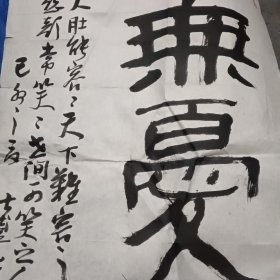 無憂
大肚能容〻天下難容之
慈颜常笑〻世间可笑之人